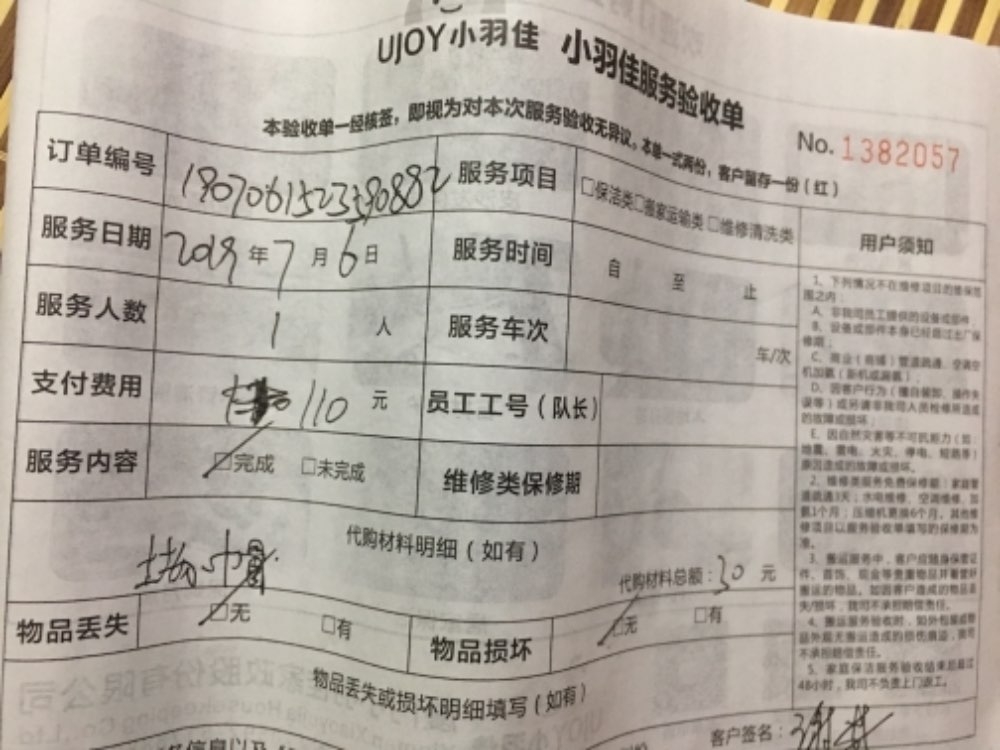 UJOY小羽佳 小羽佳服务验收单
本验收单一经核签，即视为对本次服务验收无异议。本单一式两份，客户留存一份（红）
No. 1382057
订单编号
服务项目 □保洁类□搬家运输类 □维修清洗类
用户须知
服务日期 2019 年 7 月 6 日
服务时间 自 至 止
服务人数 1 人
服务车次 车/次
支付费用 110 元
员工工号（队长）
服务内容 □完成 □未完成
维修类保修期
代购材料明细（如有）
代购材料总额：30 元
物品丢失 □无 □有
物品损坏 □无 □有
物品丢失或损坏明细填写（如有）
客户签名：
1、下列情况不在维修项目的维保范
围之内：
A、非我司员工提供的设备或部件
B、设备或部件本身已经超过出厂保
修期；
C、商业（商铺）管道疏通、空调空
机加氨（新机或漏氨）
D、因客户行为（擅自装卸、操作失
误等）或另请非我司人员检修所造成
的故障或损坏；
E、因自然灾害等不可抗力（如：
地震、雷电、火灾、停电、短路等）
原因造成的故障或损坏。
2、维修类服务免费保修期：家庭管
道疏通3天；水电维修、空调维修、加
氨1个月；压缩机更换6个月。其他维
修项目以服务验收单填写的保修期为
准。
3、搬运服务中，客户应随身保管证
件、首饰、现金等贵重物品并看管好
搬运的物品。如因客户造成的物品丢
失/损坏，我司不承担赔偿责任。
4、搬运服务验收时，如外包装或物
品外观无搬运造成的损伤痕迹，我司
不承担赔偿责任。
5、家庭保洁服务验收结束后超过
48小时，我司不负责上门返工。